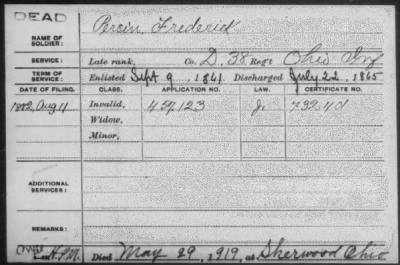 DEAD
NAME OF SOLDIER: Frederick
SERVICE: Late rank, Co. D, 38 Reg't Ohio Inf
TERM OF SERVICE: Enlisted Sept 9, 1861. Discharged July 22, 1865
DATE OF FILING. CLASS. APPLICATION NO. LAW. CERTIFICATE NO.
1882, Aug 11 Invalid, 457,123 732,401
Widow,
Minor,
ADDITIONAL SERVICES:
REMARKS:
Died May 29, 1919, at Sherwood Ohio